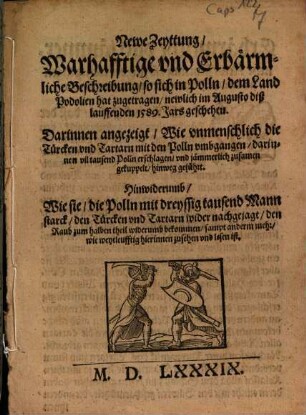 Caps 12
Newe Zeyttung/
Warhafftige vnd Erbärm-
liche Beschreibung/ so sich in Polln/ dem Land
Podolien hat zugetragen/ newlich im Augusto diß
lauffenden 1589. Jars geschehen.
Darinnen angezeigt/ Wie vnmenschlich die
Türcken vnd Tartarn mit den Polln vmbgangen/ darin-
nen vil tausend Polln erschlagen/ vnd jämmerlich zusamen
gekuppelt/ hinweg geführt.
Hinwiderumb/
Wie sie/ die Polln mit dreyssig tausend Mann
starck/ den Türcken vnd Tartarn wider nachgejagt/ den
Raub zum halben theil widerumb bekommen/ sampt anderm mehr/
wie weytleufftig hierinnen zusehen vnd lesen ist.
M. D. LXXXIX.